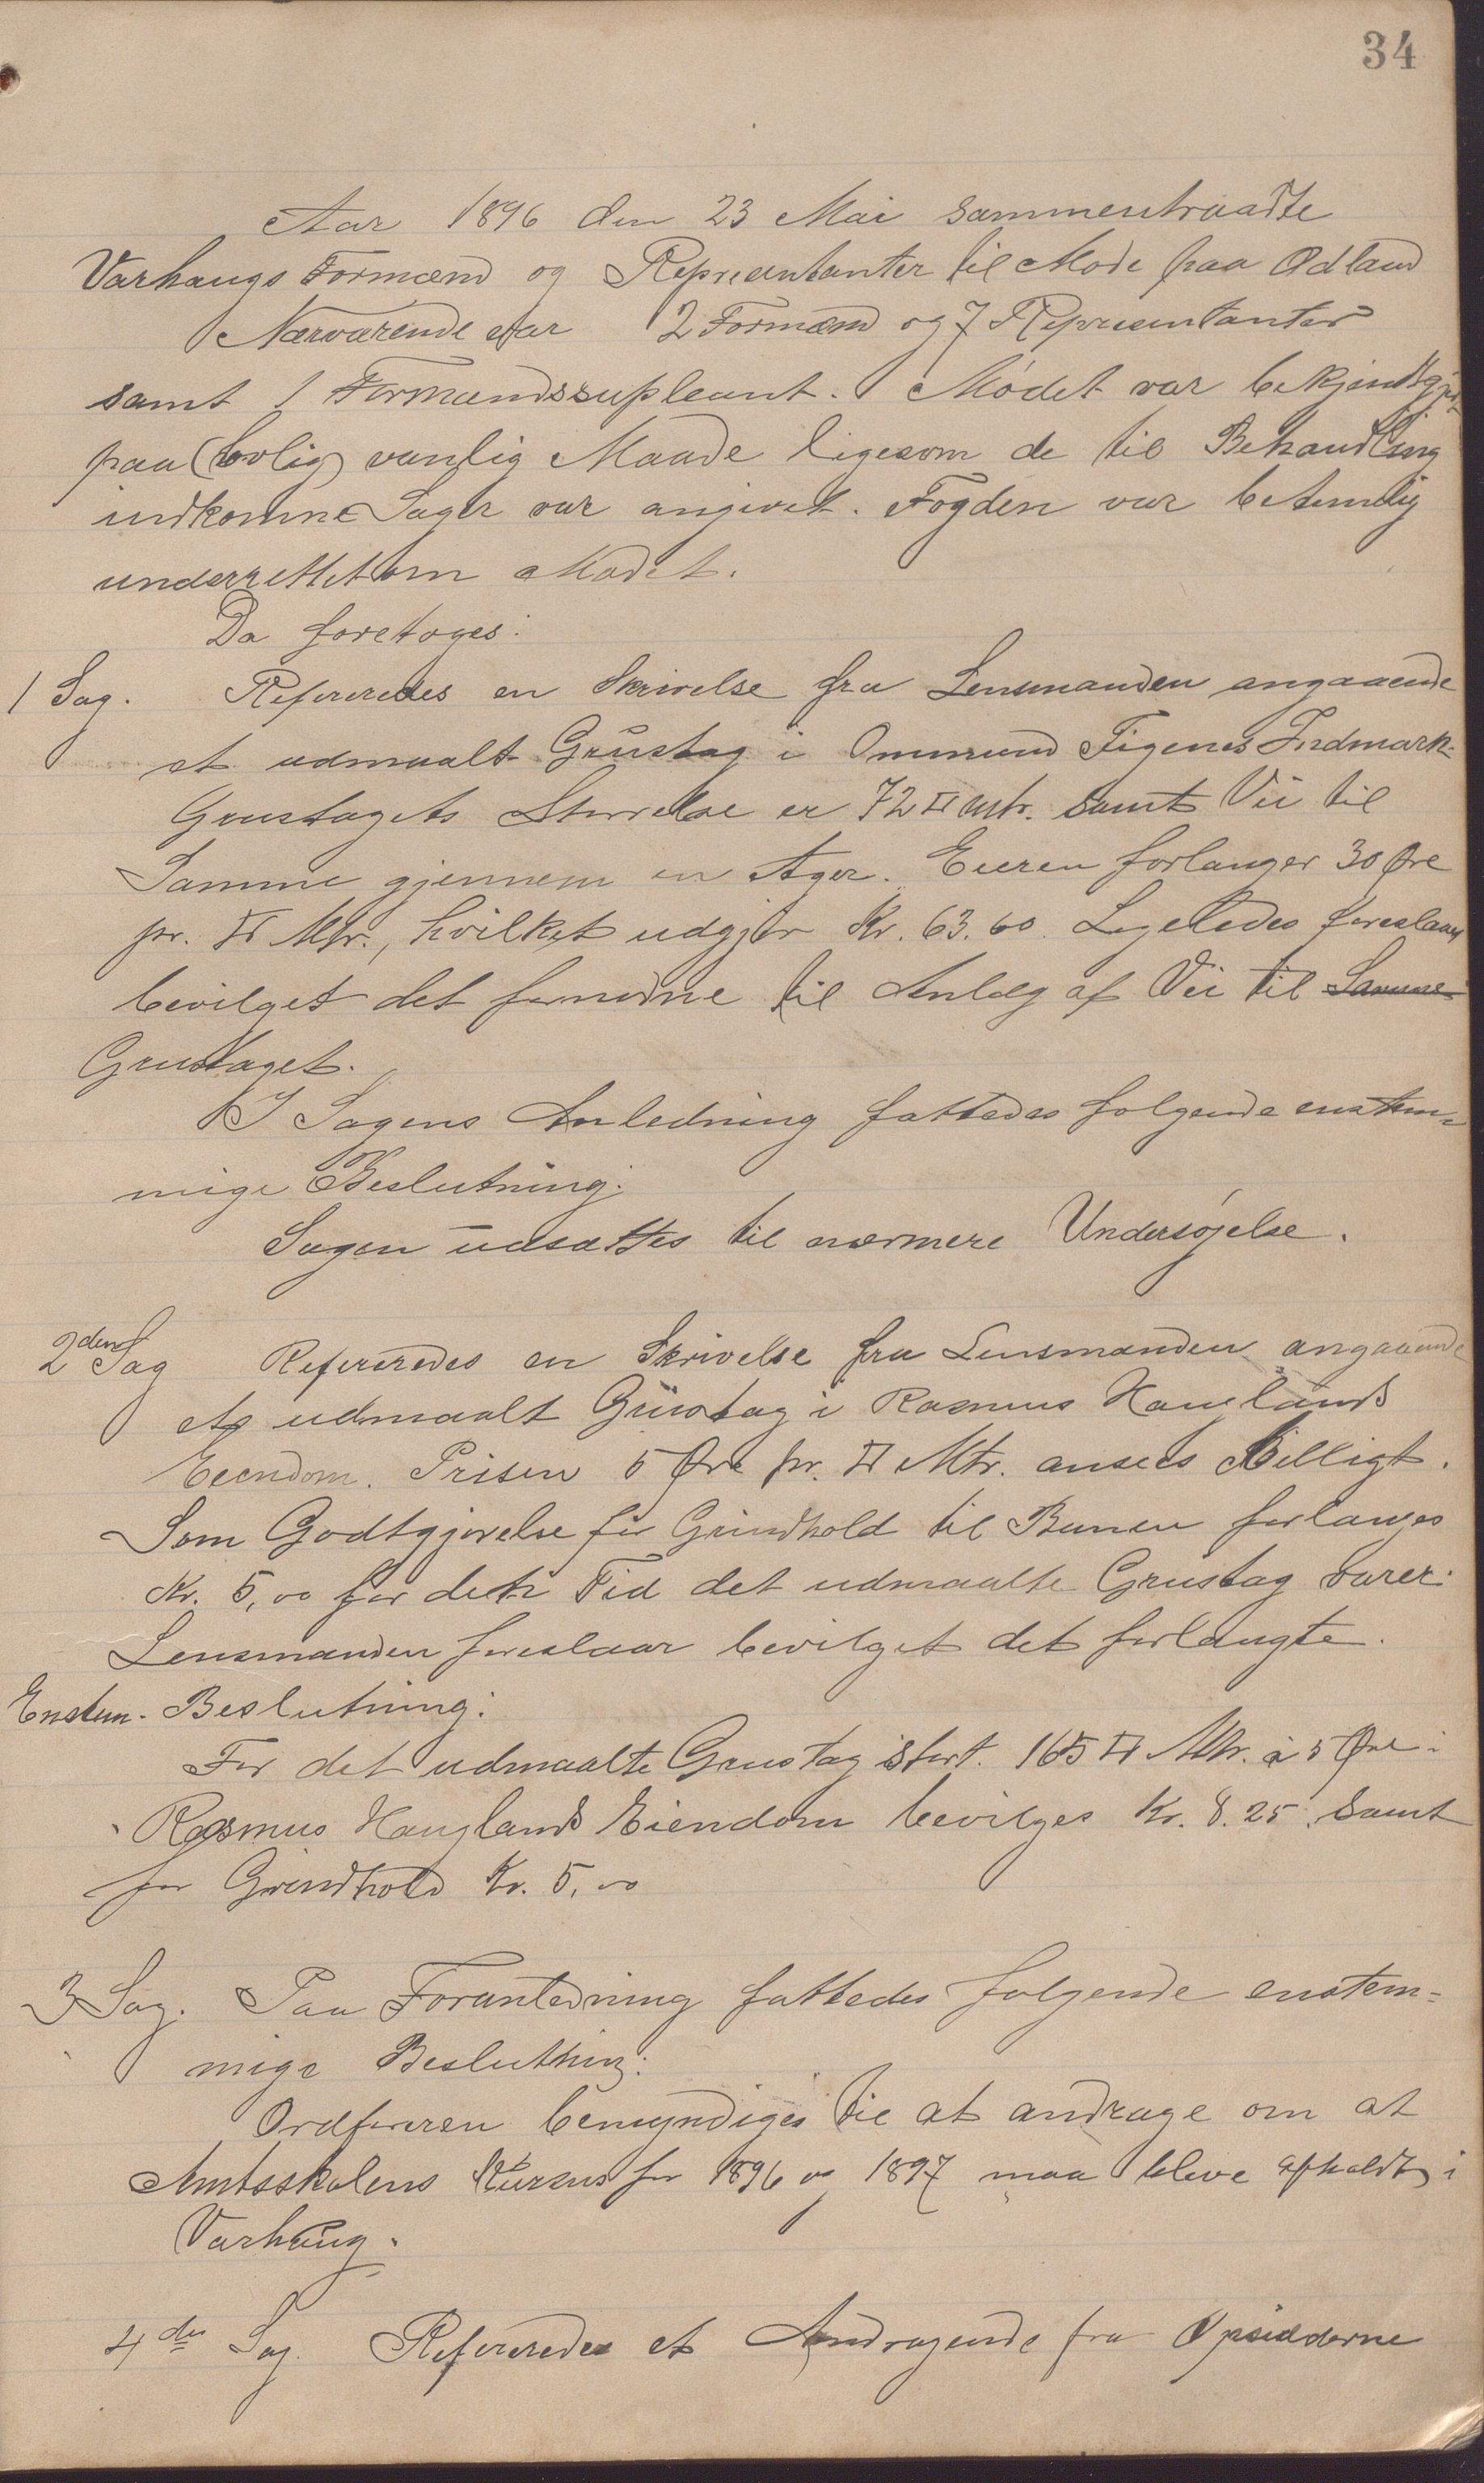 34
Aar 1896 den 23 Mai sammentraadte
Varhaugs Formænd og Repræsentanter til Møde paa Ødland
Nærværende var 2 Formænd og 7 Repræsentanter
samt 1 Formandssupleant. Mødet var bekjendtgjort
paa (lovlig) vanlig Maade ligesom de til Behandling
indkomne Sager var angivet. Fogden var betimelig
underrettet om Mødet.
Da foretoges:
1 Sag. Refereredes en Skrivelse fra Lensmanden angaaende
et udmaalt Grustag i Ommund Tigenes Indmark.
Grustagets Størrelse er 72 □ Mtr. samt Vei til
Samme gjennem en Ager. Eieren forlanger 30 Øre
pr. □ Mtr., hvilket udgjør Kr. 63.60. Ligeledes foreslaaes
bevilget det fornødne til Anlæg af Vei til Samme
Grustaget.
I Sagens Anledning fattedes følgende enstem=
mige Beslutning:
Sagen udsættes til nærmere Undersøgelse.
2den Sag Refereredes en Skrivelse fra Lensmanden angaaende
et udmaalt Grustag i Rasmus Hauglands
Eiendom. Prisen 5 Øre pr. □ Mtr. ansees Billigt.
Som Godtgjørelse for Grindhold til Bruen forlanges
Kr. 5,00 for den Tid det udmaalte Grustag varer.
Lensmanden foreslaar bevilget det forlangte.
Enstem. Beslutning:
For det udmaalte Grustag stort 165 □ Mtr. à 5 Øre i
Rasmus Hauglands Eiendom bevilges Kr. 8.25. samt
for Grindhold Kr. 5,00
3 Sag. Paa Foranledning fattedes følgende enstem=
mige Beslutning:
Ordføreren bemyndiges til at andrage om at
Amtsskolens Kursus for 1896 og 1897 maa blive afholdt i
Varhaug.
4de Sag. Refereredes et Andragende fra Opsidderne